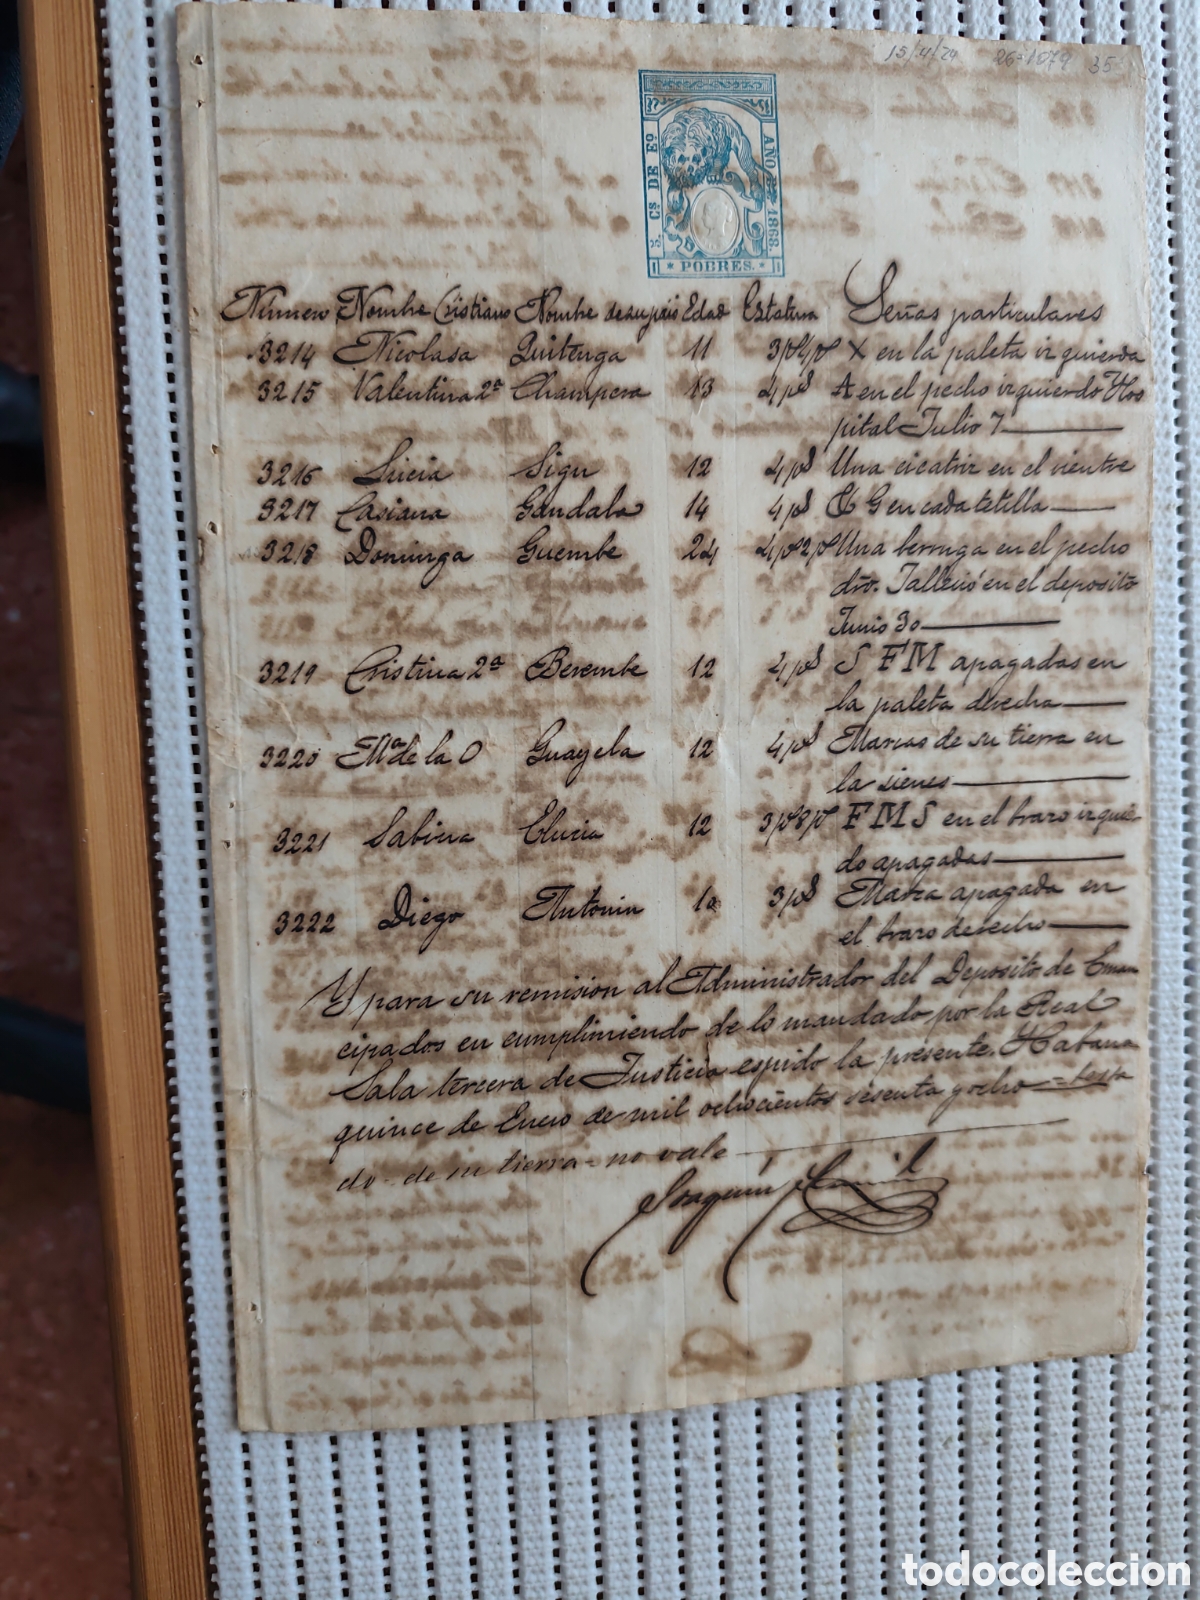 15/4/24 26=1079 35
5. Cs DE Eº
AÑO DE 1868.
* POBRES. *
Número Nombre Cristiano Nombre de su país Edad Estatura Señas particulares
3214 Nicolasa Quitenga 11 3ps 4ps X en la paleta izquierda
3215 Valentina 2ª Champera 13 4ps A en el pecho izquierdo Hos
pital Julio 7
3216 Lucia Sigu 12 4ps Una cicatriz en el vientre
3217 Casiana Gandala 14 4ps G en cada tetilla
3218 Dominga Guembe 24 4ps 2ps Una berruga en el pecho
dro. Falleció en el deposito
Junio 30
3219 Cristina 2ª Berembe 12 4ps S F M apagadas en
la paleta derecha
3220 Mª de la O Guayela 12 4ps Marcas de su tierra en
la sienes
3221 Sabina Eluria 12 3ps 8ps F M S en el brazo izquier
do apagadas
3222 Diego Antonin 10 3ps Marca apagada en
el brazo derecho
Y para su remision al Administrador del Deposito de Eman
cipados en cumplimiendo de lo mandado por la Real
Sala tercera de Justicia espido la presente. Habana
quince de Enero de mil ochocientos sesenta y ocho =
do - de su tierra = no vale
Joaquin
todocoleccion